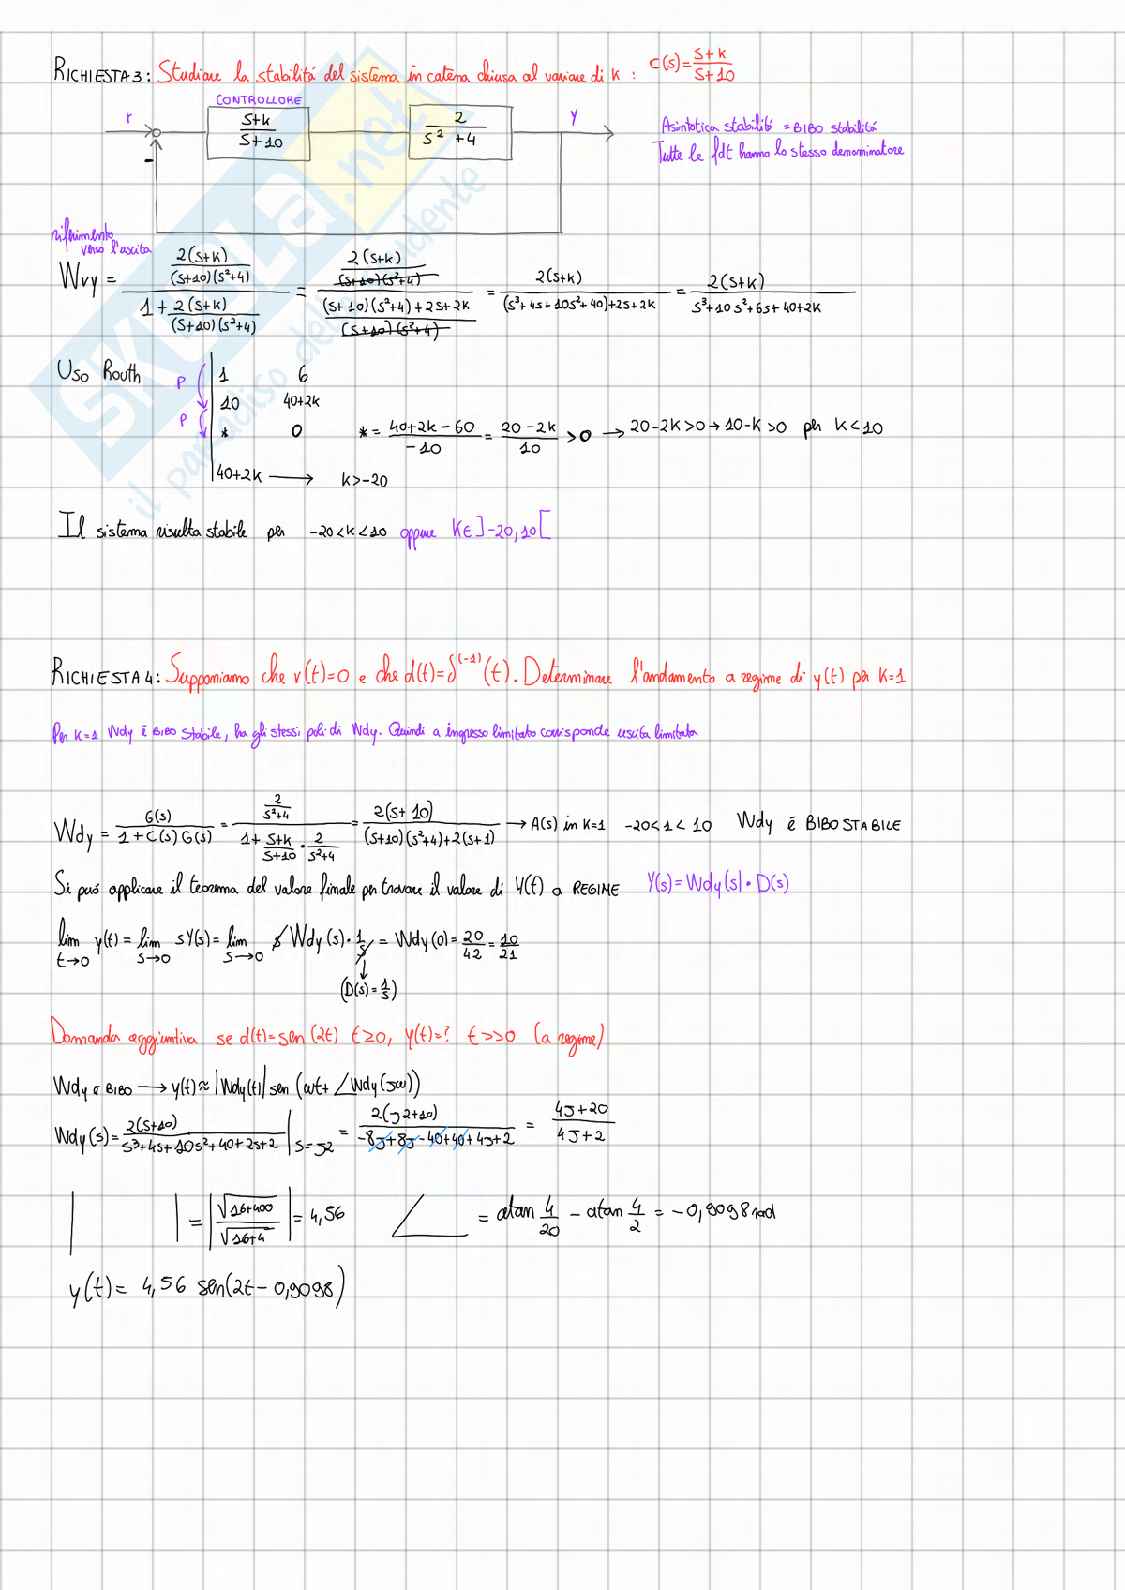 RICHIESTA 3: Studiare la stabilitá del sistema in catena chiusa al variare di K : C(s)=\frac{s+k}{s+10}
CONTROLLORE
r
\frac{s+k}{s+10}
\frac{2}{s^2+4}
y
-
Asintotica stabilitá = BIBO stabilitá
Tutte le fdt hanno lo stesso denominatore
riferimento
verso l'uscita
Wry = \frac{\frac{2(s+k)}{(s+10)(s^2+4)}}{1+\frac{2(s+k)}{(s+10)(s^2+4)}} = \frac{\frac{2(s+k)}{(s+10)(s^2+4)}}{\frac{(s+10)(s^2+4)+2s+2k}{(s+10)(s^2+4)}} = \frac{2(s+k)}{(s^3+4s+10s^2+40)+2s+2k} = \frac{2(s+k)}{s^3+10s^2+6s+40+2k}
Uso Routh
P 1 6
P 10 40+2k
* 0 * = \frac{40+2k-60}{-10} = \frac{20-2k}{10} >0 → 20-2k>0 → 10-k>0 per k<10
40+2k → k>-20
Il sistema risulta stabile per -20<k<10 oppure K∈]-20,10[
RICHIESTA 4: Supponiamo che r(t)=0 e che d(t)=δ^{(-1)}(t). Determinare l'andamento a regime di y(t) per K=1
Per K=1 Wdy è BIBO stabile, ha gli stessi poli di Wdy. Quindi a ingresso limitato corrisponde uscita limitata
Wdy = \frac{G(s)}{1+C(s)G(s)} = \frac{\frac{2}{s^2+4}}{1+\frac{s+k}{s+10}\cdot\frac{2}{s^2+4}} = \frac{2(s+10)}{(s+10)(s^2+4)+2(s+1)} → A(s) in K=1 -20<1<10 Wdy è BIBO STABILE
Si puó applicare il teorema del valore finale per trovare il valore di Y(t) a REGIME Y(s)=Wdy(s)·D(s)
lim_{t→0} y(t) = lim_{s→0} sY(s) = lim_{s→0} s Wdy(s)·\frac{1}{s} = Wdy(0) = \frac{20}{42} = \frac{10}{21}
(D(s)=\frac{1}{s})
Domanda aggiuntiva se d(t)=sen(2t) t≥0, y(t)=? t>>0 (a regime)
Wdy è BIBO → y(t)≈|Wdy(t)|sen(ωt+∠Wdy(jω))
Wdy(s) = \frac{2(s+10)}{s^3+4s+10s^2+40+2s+2}|_{s=j2} = \frac{2(j2+10)}{-8j+8j-40+40+4j+2} = \frac{4j+20}{4j+2}
| | = |\frac{\sqrt{16+400}}{\sqrt{16+4}}| = 4,56 ∠ = atan\frac{4}{20} - atan\frac{4}{2} = -0,9098 rad
y(t) = 4,56 sen(2t-0,9098)
SKUOLA.net
il paradiso dello studente